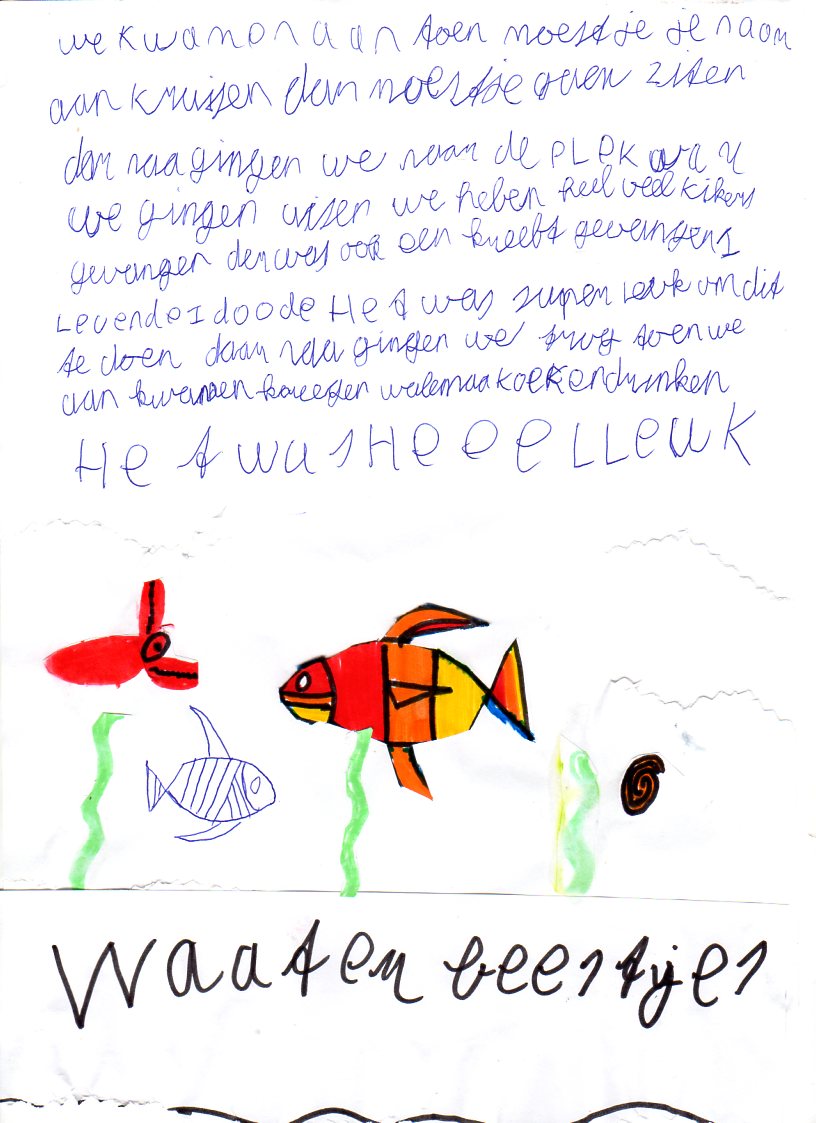 we kwamen aan toen moest je je naam
aan kruisen dan moest je gaan ziten
dan naa gingen we naar de PLEK waar
we gingen vissen we heben heel veel kikers
gevangen der was ook een kreeft gevangen 1
Levende 1 doode Het was super Leuk om dit
te doen daar naa gingen we trug toen we
aan kwamen kreegen we lemnaa koek en drinken
Het was Heeel Leuk
Waater beestjes